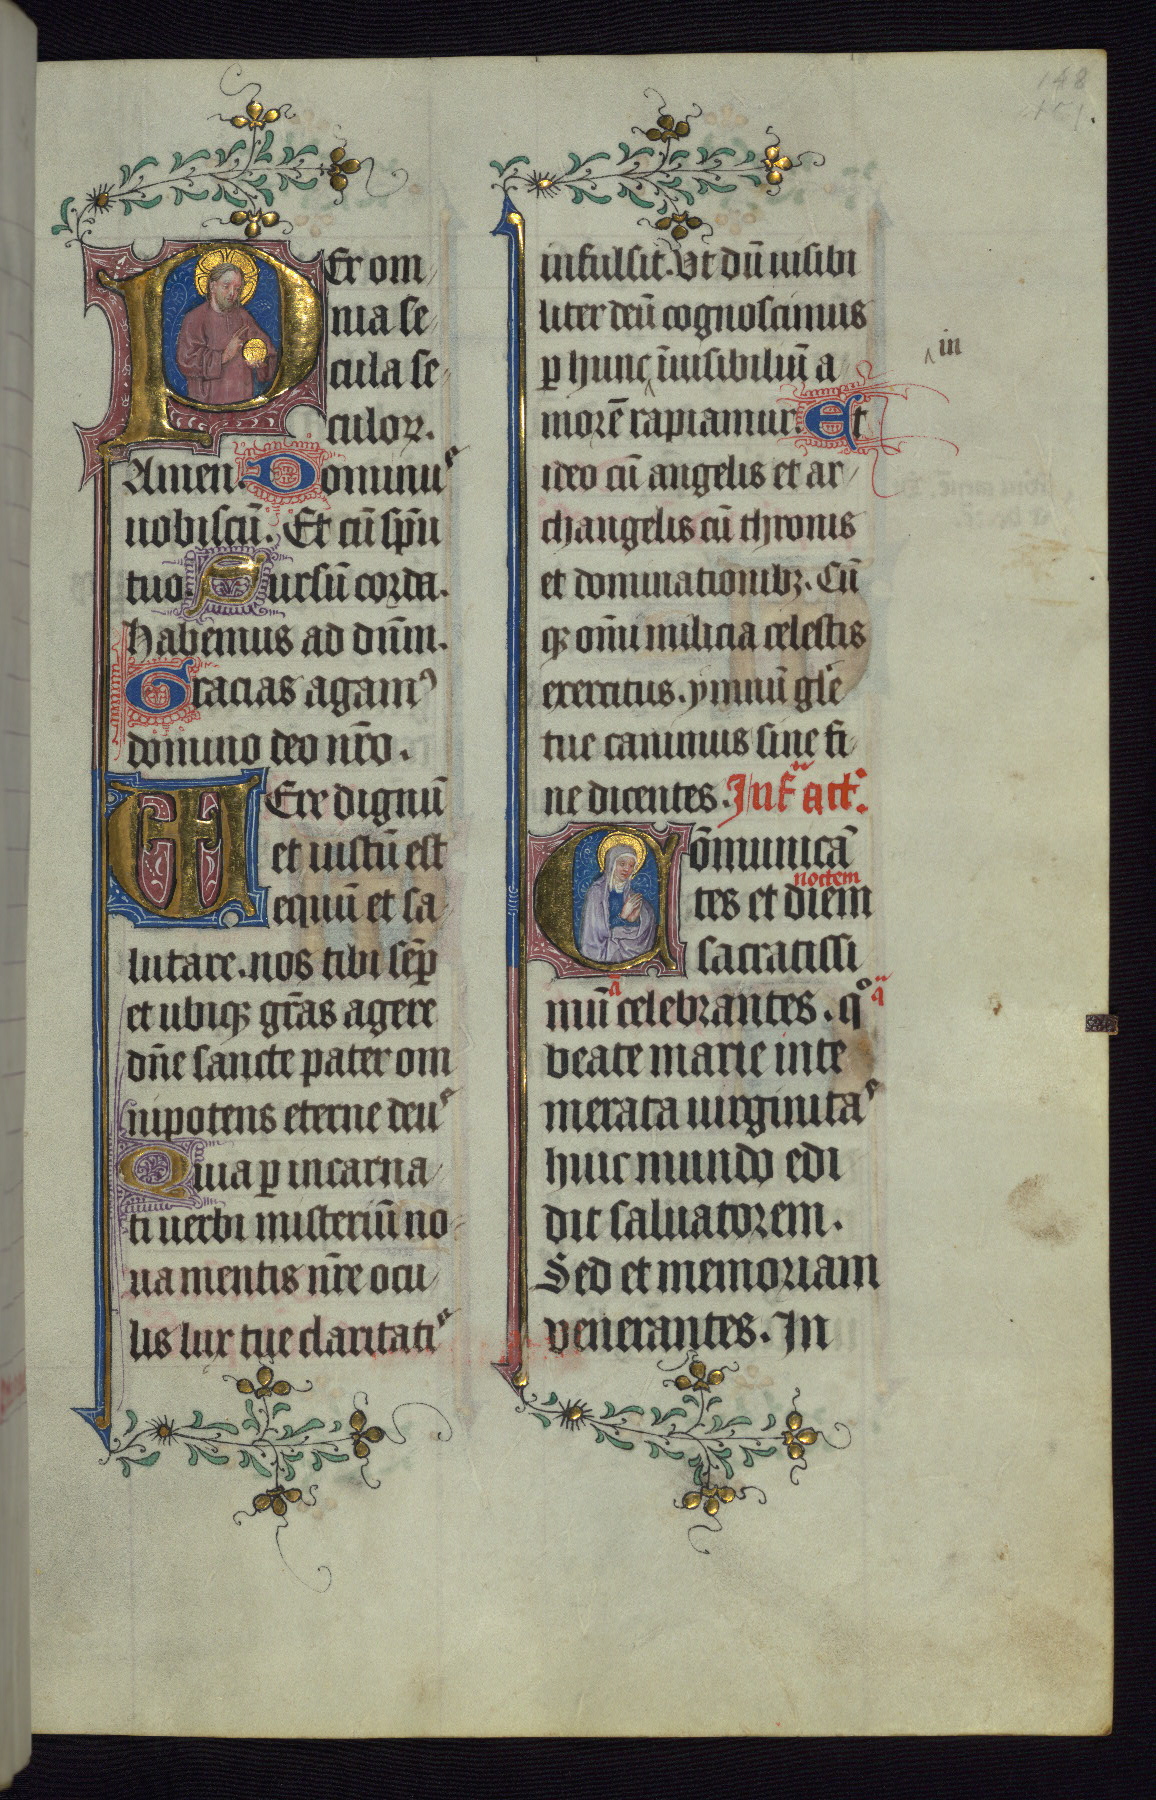 148
151.
Per om
nia se
cula se
culoꝝ.
Amen. Dominus
uobiscū. Et cū spū
tuo. Sursū corda.
Habemus ad dn̄m.
Gracias agamꝰ
domino deo nr̄o.
Uere dignū
et iustū est
equū et sa
lutare. nos tibi sēꝑ
et ubiqꝫ gr̄as agere
dn̄e sancte pater om
nipotens eterne deus
Quia ꝑ incarna
ti uerbi misteriū no
ua mentis nr̄e ocu
lis lux tue claritatis
infulsit. Vt dū uisibi
liter deū cognoscimus
ꝑ hunc ī uisibiliū a
in
morē rapiamur. Et
ideo cū angelis et ar
changelis cū thronis
et dominationibꝫ. Cū
qꝫ omī milicia celestis
exercitus. ymnū gl̄e
tue canimus sine fi
ne dicentes. Inf̄ act̄.
Cōmunicā
noctem
tes et diem
sacratissi
mū a celebrantes. qͦ a
beate marie inte
merata uirginitas
huic mundo edi
dit saluatorem.
Sed et memoriam
venerantes. In